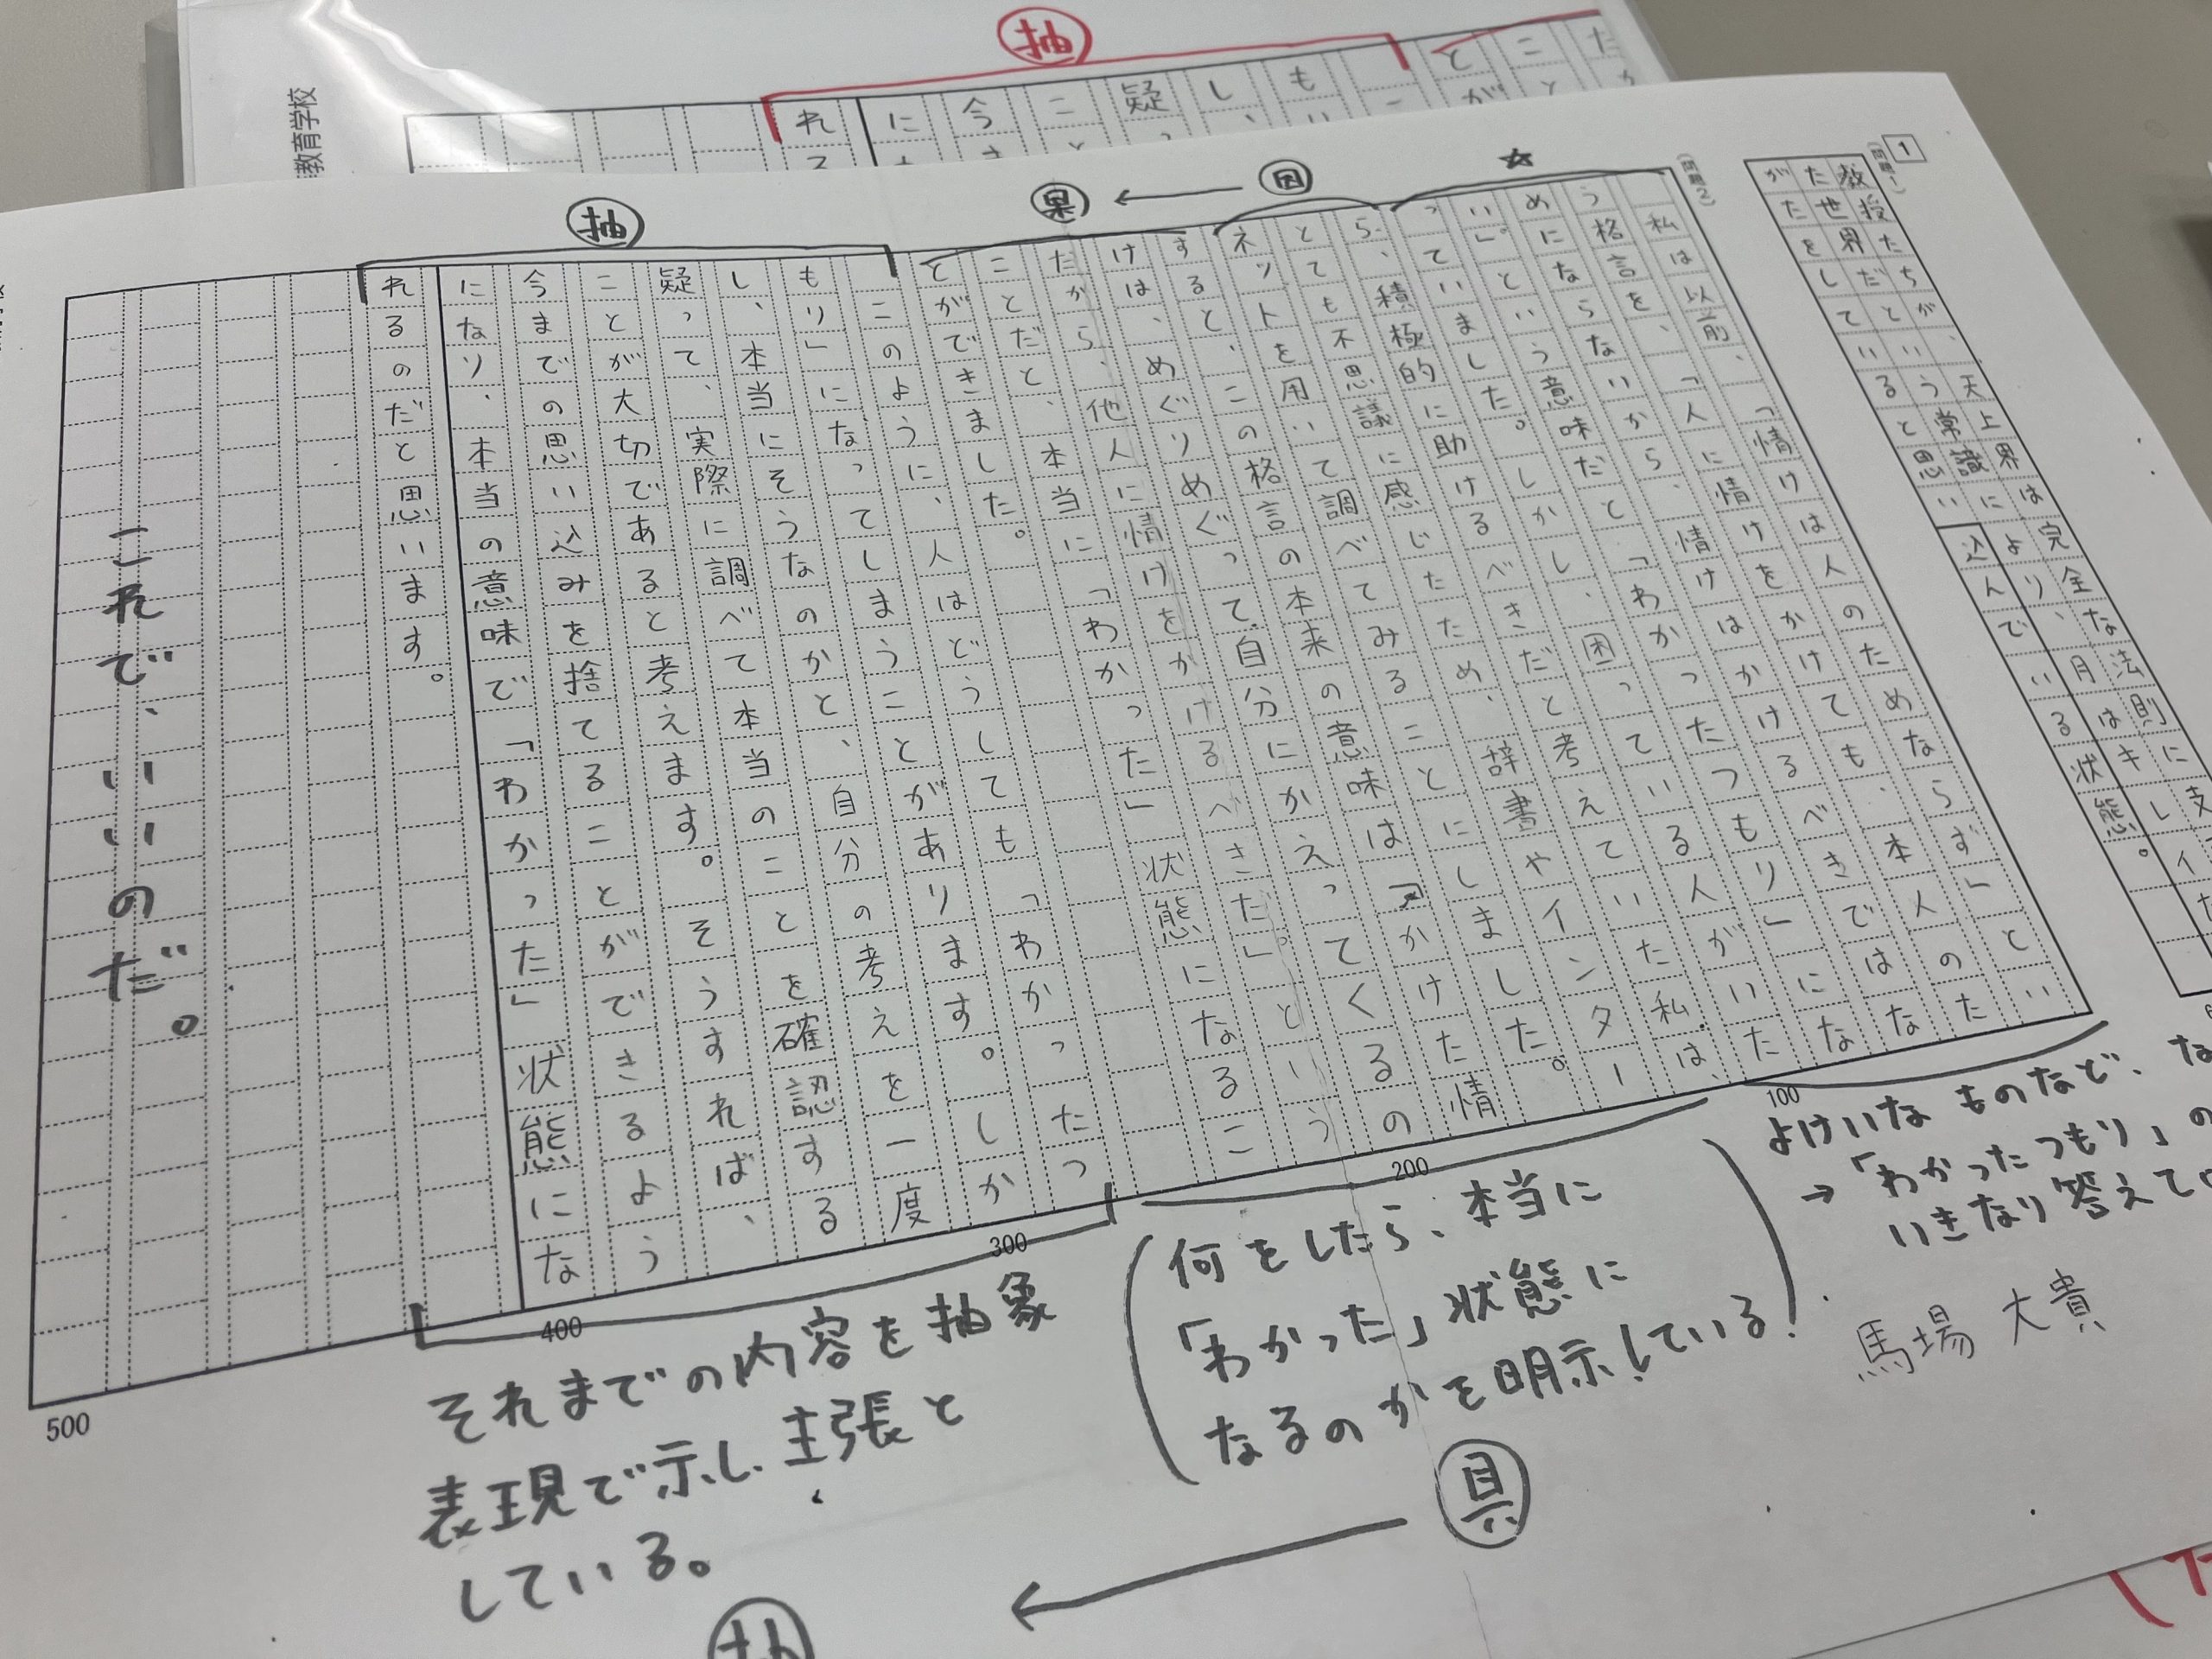 教育学校
抽
た
こ
とが
も
し、
疑
こ
今
に
れる
1
(問題1)
教授たちが、天上界は完全な法則に支
た世界だという常識により、月はキレイ
がたをしていると思い込んでいる状態。
(問題2)
☆
因
←
果
抽
私は以前、「情けは人のためならず」とい
う格言を、「人に情けをかけても、本人のた
めにならないから、情けはかけるべきではな
い」という意味だと「わかったつもり」にな
っていました。しかし、困っている人がいた
ら、積極的に助けるべきだと考えていた私は、
とても不思議に感じたため、辞書やインター
ネットを用いて調べてみることにしました。
すると、この格言の本来の意味は「かけた情
けは、めぐりめぐって自分にかえってくるの
だから、他人に情けをかけるべきだ」という
ことだと、本当に「わかった」状態になるこ
とができました。
このように、人はどうしても「わかったつ
もり」になってしまうことがあります。しか
し、本当にそうなのかと、自分の考えを一度
疑って、実際に調べて本当のことを確認する
ことが大切であると考えます。そうすれば、
今までの思い込みを捨てることができるよう
になり、本当の意味で「わかった」状態にな
れるのだと思います。
これで、いいのだ。
100
200
300
400
500
よけいなものなど、な
→「わかったつもり」の
いきなり答えて
馬場 大貴
何をしたら、本当に
「わかった」状態に
なるのかを明示している!
具
←
それまでの内容を抽象
表現で示し、主張と
している。
抽